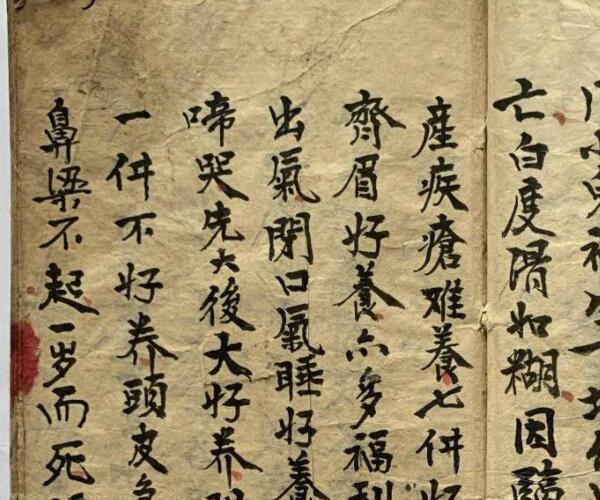 亡白度滑如糊因臨
産疾瘡难養七件好
齊眉好養亦多福利
出氣閉口氣睡好養
啼哭先大後大好养
一件不好养頭皮
鼻梁不起一岁而死